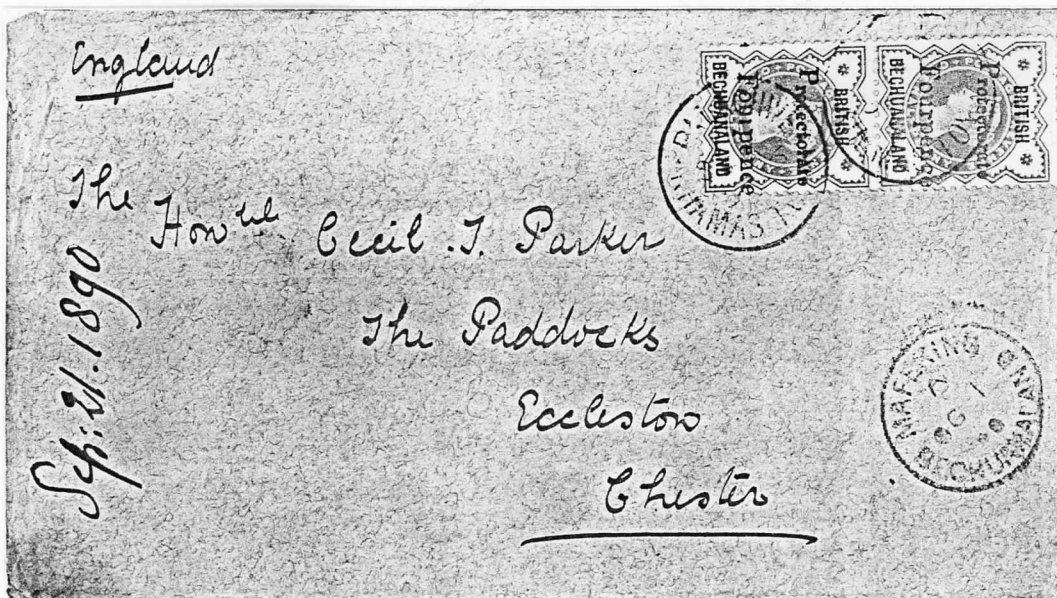 England
The Honble Cecil . T. Parker
The Paddocks
Eccleston
Chester
Sep: 21. 1890
BRITISH
BECHUANALAND
Protectorate
Fourpence
BRITISH
BECHUANALAND
Protectorate
Fourpence
MAFEKING
BECHUANALAND